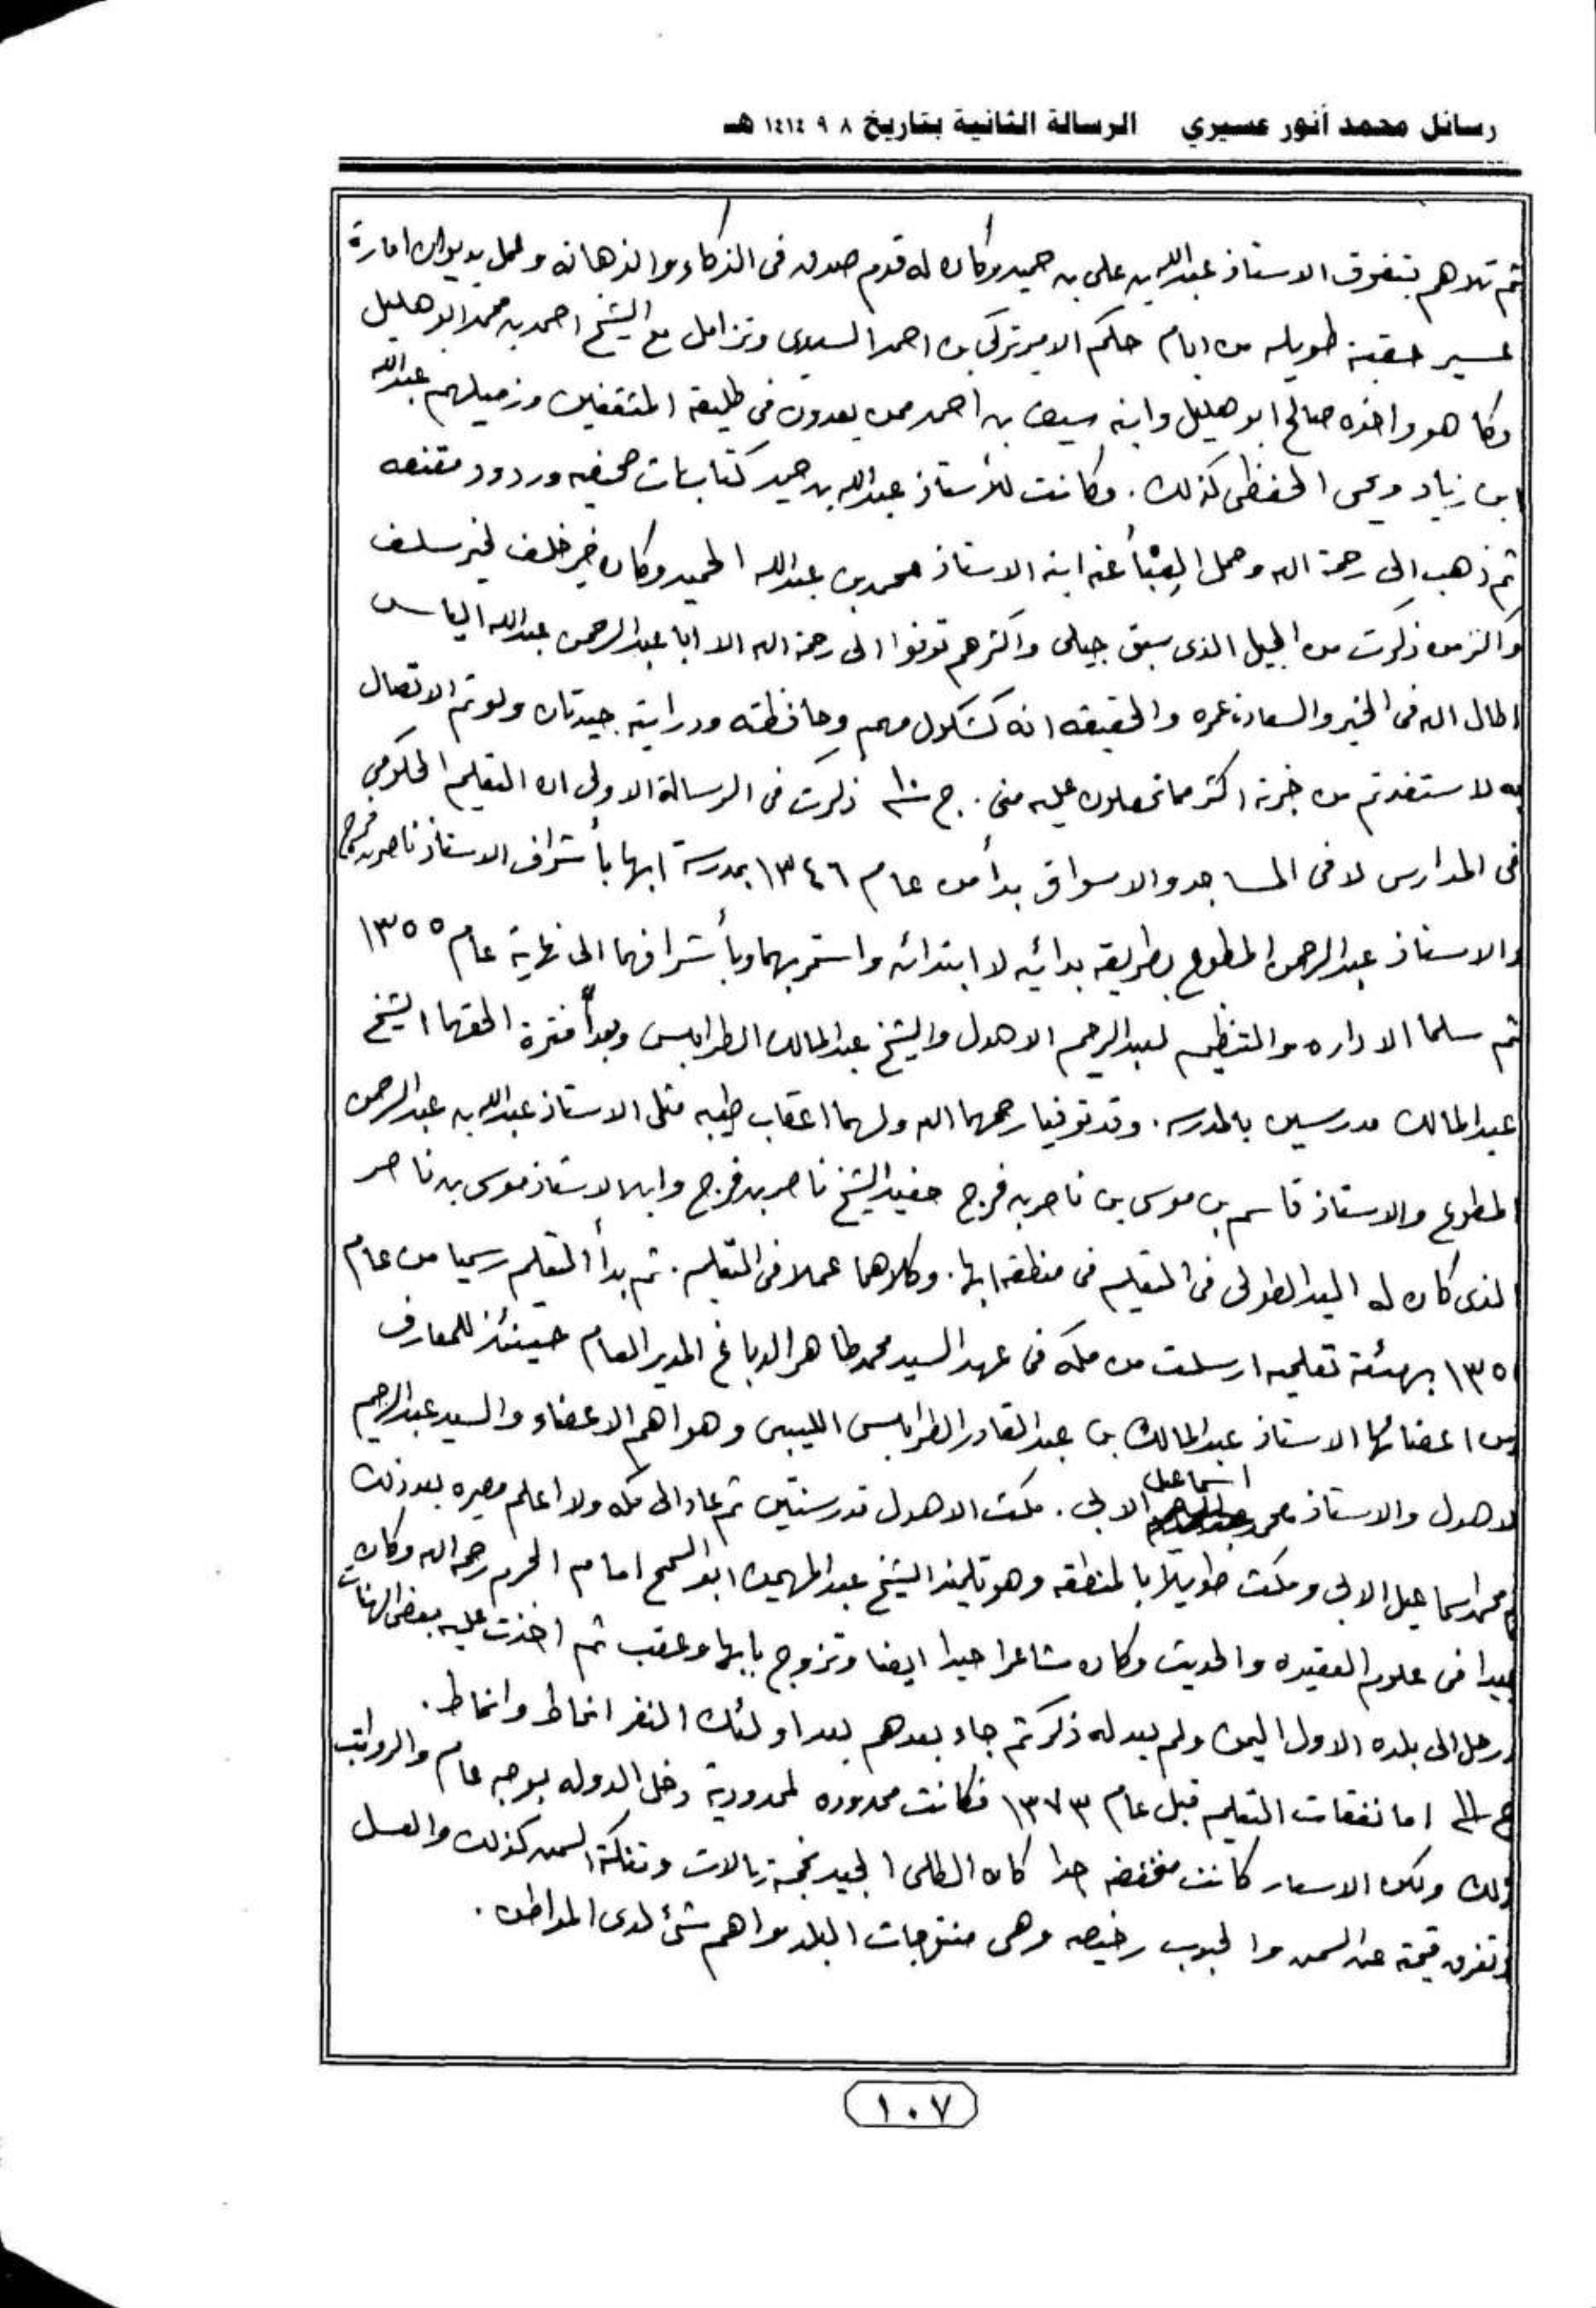 رسائل محمد أنور عسيري الرسالة الثانية بتاريخ ٨ ٩ ١٤١٤ هـ
ثم تلاهم بتفوق الاستاذ عبدالله بن علي بن حميد وكان له قدم صدق في الذكاء والذهانه وعمل بديوان امارة
عسير حقبة طويله من ايام حكم الامير تركي بن احمد السديري وتزامل مع الشيخ احمد بن محمد ابو هليل
وكا هو واخوه صالح ابو هليل وابنه سيف بن احمد ممن يعدون في طليعة المثقفين وزميلهم عبدالله
ابن زياد ويحي الحفظي كذلك . وكانت للأستاذ عبدالله بن حميد كتابات صحيفيه وردود مقنعه
ثم ذهب إلى رحمة الله وحمل العِبْأ عنه ابنه الاستاذ محمد بن عبدالله الحميد وكان خير خلف لخير سلف
واكثر من ذكرت من الجيل الذي سبق جيلي واكثرهم توفوا الى رحمة الله الا ابا عبدالرحمن عبدالله الياس
اطال الله في الخير والسعادة عمره والحقيقه انه كشكول مهم وحافظته ودرايته جيدتان ولو تم الاتصال
به لاستفدتم من خبرته اكثر مما تحصلون عليه مني . ج ١٠ ذكرت في الرسالة الاولى ان التعليم الحكومي
في المدارس لا في المساجد والاسواق بدأ من عام ١٣٤٦ بمدرسة ابها بأشراف الاستاذ ناصر بن فرج
والاستاذ عبدالرحمن المطوع بطريقه بدائيه لا ابتدائه واستمر بهما وبأشرافهما الى نهاية عام ١٣٥٥
ثم سلما الاداره والتنظيم لعبدالرحيم الاهدل والشيخ عبدالمالك الطرابلسي وبعد فترة الحقهما الشيخ
عبدالمالك مدرسين بالمدرسه . وقد توفيا رحمهما الله ولهما اعقاب طيبه مثل الاستاذ عبدالله بن عبدالرحمن
المطوع والاستاذ قاسم بن موسى بن ناصر بن فرج حفيد الشيخ ناصر بن فرج وابن الاستاذ موسى بن ناصر
الذي كان له اليد الطولى في التعليم في منطقه ابها . وكلاهما عملا في التعليم . ثم بدأ التعليم رسميا من عام
١٣٥ بهيئة تعلميه ارسلت من مكه في عهد السيد محمد طاهر الدباغ المدير العام حينئذ للمعارف
ومن اعضائها الاستاذ عبدالمالك بن عبدالقادر الطرابلسي الليبي وهو اهم الاعضاء والسيد عبدالرحيم
الاهدل والاستاذ محمد اسماعيل الابي . مكث الاهدل قدر سنتين ثم عاد الى مكه ولا اعلم مصيره بعد ذلك
ثم محمد اسماعيل الابي ومكث طويلاً بالمنطقه وهو تلميذ الشيخ عبدالمهيمن ابو السمح امام الحرم رحمه الله وكان
جيدا في علوم العقيده والحديث وكان شاعرا جيدا ايضا وتزوج بابها وعقب ثم اخذت عليه بعض الهنات
ورحل الى بلده الاول اليمن ولم يعد له ذكر ثم جاء بعدهم بعد اولئك النفر انماط وانماط .
ج ١١ اما نفقات التعليم قبل عام ١٣٧٣ فكانت محدوده لمحدودية دخل الدوله بوجه عام والرواتب
كذلك ولكن الاسعار كانت منخفضه جدا كان الطلي الجيد بخمسة ريالات وتنكة السمن كذلك والعسل
وتفرق قيمته عن السمن والحبوب رخيصه وهي منتوجات البلد واهم شئ لدى المواطن .
١٠٧